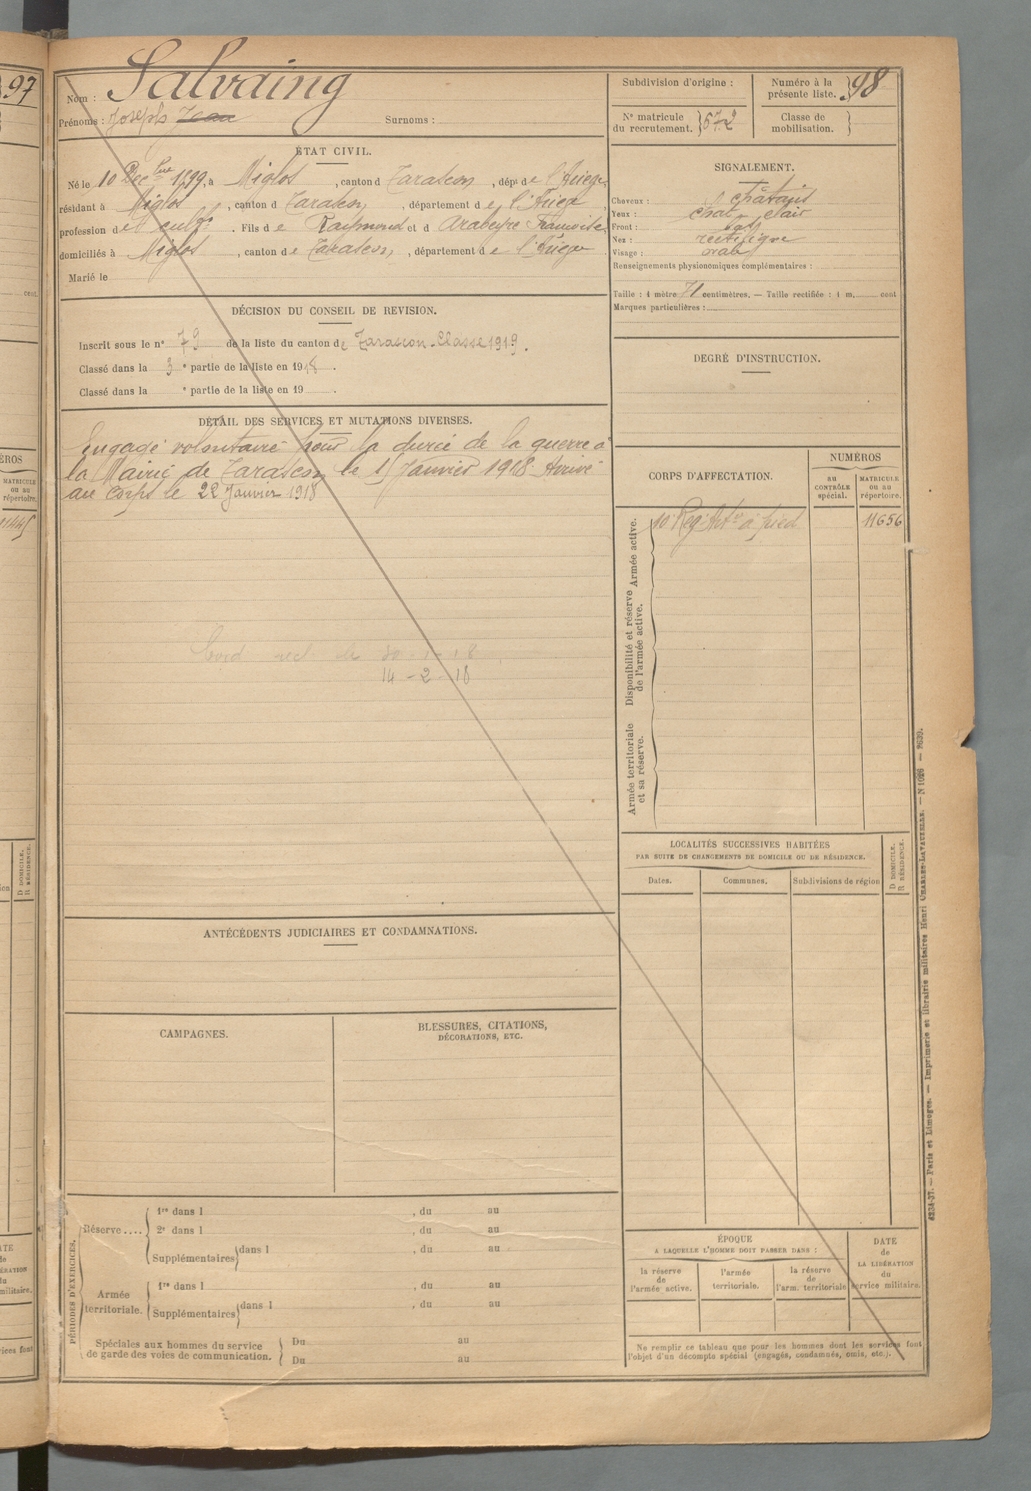 97
Nom : Salvaing
Prénoms : Joseph Jean Surnoms :
Subdivision d'origine :
Numéro à la présente liste. 98
N° matricule du recrutement. 572
Classe de mobilisation.
ÉTAT CIVIL.
Né le 10 Dec 1899, à Miglos, canton d Tarascon, dépt de l'Ariège,
résidant à Miglos, canton d Tarascon, département de l'Ariège,
profession de cultr. Fils de Raymond et d Arabeyre Françoise,
domiciliés à Miglos, canton de Tarascon, département de l'Ariège
Marié le
SIGNALEMENT.
Cheveux : châtains
Yeux : chat. clair
Front :
Nez : rectiligne
Visage : ovale
Renseignements physionomiques complémentaires :
Taille : 1 mètre 71 centimètres. — Taille rectifiée : 1 m. cent
Marques particulières :
DÉCISION DU CONSEIL DE REVISION.
Inscrit sous le n° 79 de la liste du canton de Tarascon - Classe 1919.
Classé dans la 3e partie de la liste en 1918.
Classé dans la e partie de la liste en 19 .
DEGRÉ D'INSTRUCTION.
DÉTAIL DES SERVICES ET MUTATIONS DIVERSES.
Engagé volontaire pour la durée de la guerre à
la Mairie de Tarascon le 15 Janvier 1918. Arrivé
au corps le 22 Janvier 1918
le 30-1-18
14-2-18
CORPS D'AFFECTATION.
NUMÉROS
au CONTRÔLE spécial.
MATRICULE ou au répertoire.
Armée active.
10e Rég. Art ie à pied 11656
Disponibilité et réserve de l'armée active.
Armée territoriale et sa réserve.
LOCALITÉS SUCCESSIVES HABITÉES
PAR SUITE DE CHANGEMENTS DE DOMICILE OU DE RÉSIDENCE.
Dates. Communes. Subdivisions de région
D DOMICILE.
R RÉSIDENCE.
ANTÉCÉDENTS JUDICIAIRES ET CONDAMNATIONS.
CAMPAGNES.
BLESSURES, CITATIONS,
DÉCORATIONS, ETC.
PÉRIODES D'EXERCICES.
Réserve....
1re dans l , du au
2e dans l , du au
Supplémentaires dans l , du au
Armée territoriale.
1re dans l , du au
Supplémentaires dans l , du au
Spéciales aux hommes du service
de garde des voies de communication.
Du au
Du au
ÉPOQUE
A LAQUELLE L'HOMME DOIT PASSER DANS :
la réserve de l'armée active.
l'armée territoriale.
la réserve de l'arm. territoriale
DATE de LA LIBÉRATION du service militaire.
Ne remplir ce tableau que pour les hommes dont les services font
l'objet d'un décompte spécial (engagés, condamnés, omis, etc.).
Paris et Limoges. — Imprimerie et librairie militaires Henri CHARLES-LAVAUZELLE.